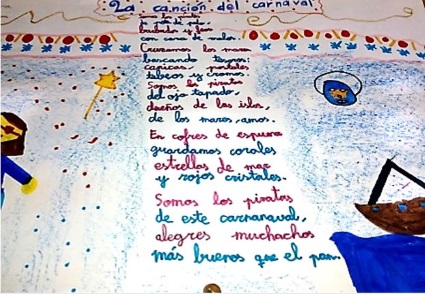 La canción del carnaval
de
barbuda y fea
con cara de malos.
Cruzamos los mares
buscando tesoros:
capicúas, postales
tebeos y cromos.
Somos los piratas
del ojo tapado,
dueños de las islas,
de los mares, amos.
En cofres de espuma
guardamos corales
estrellas de mar
y rojos cristales.
Somos los piratas
de este carnanaval,
alegres muchachos
más buenos que el pan.